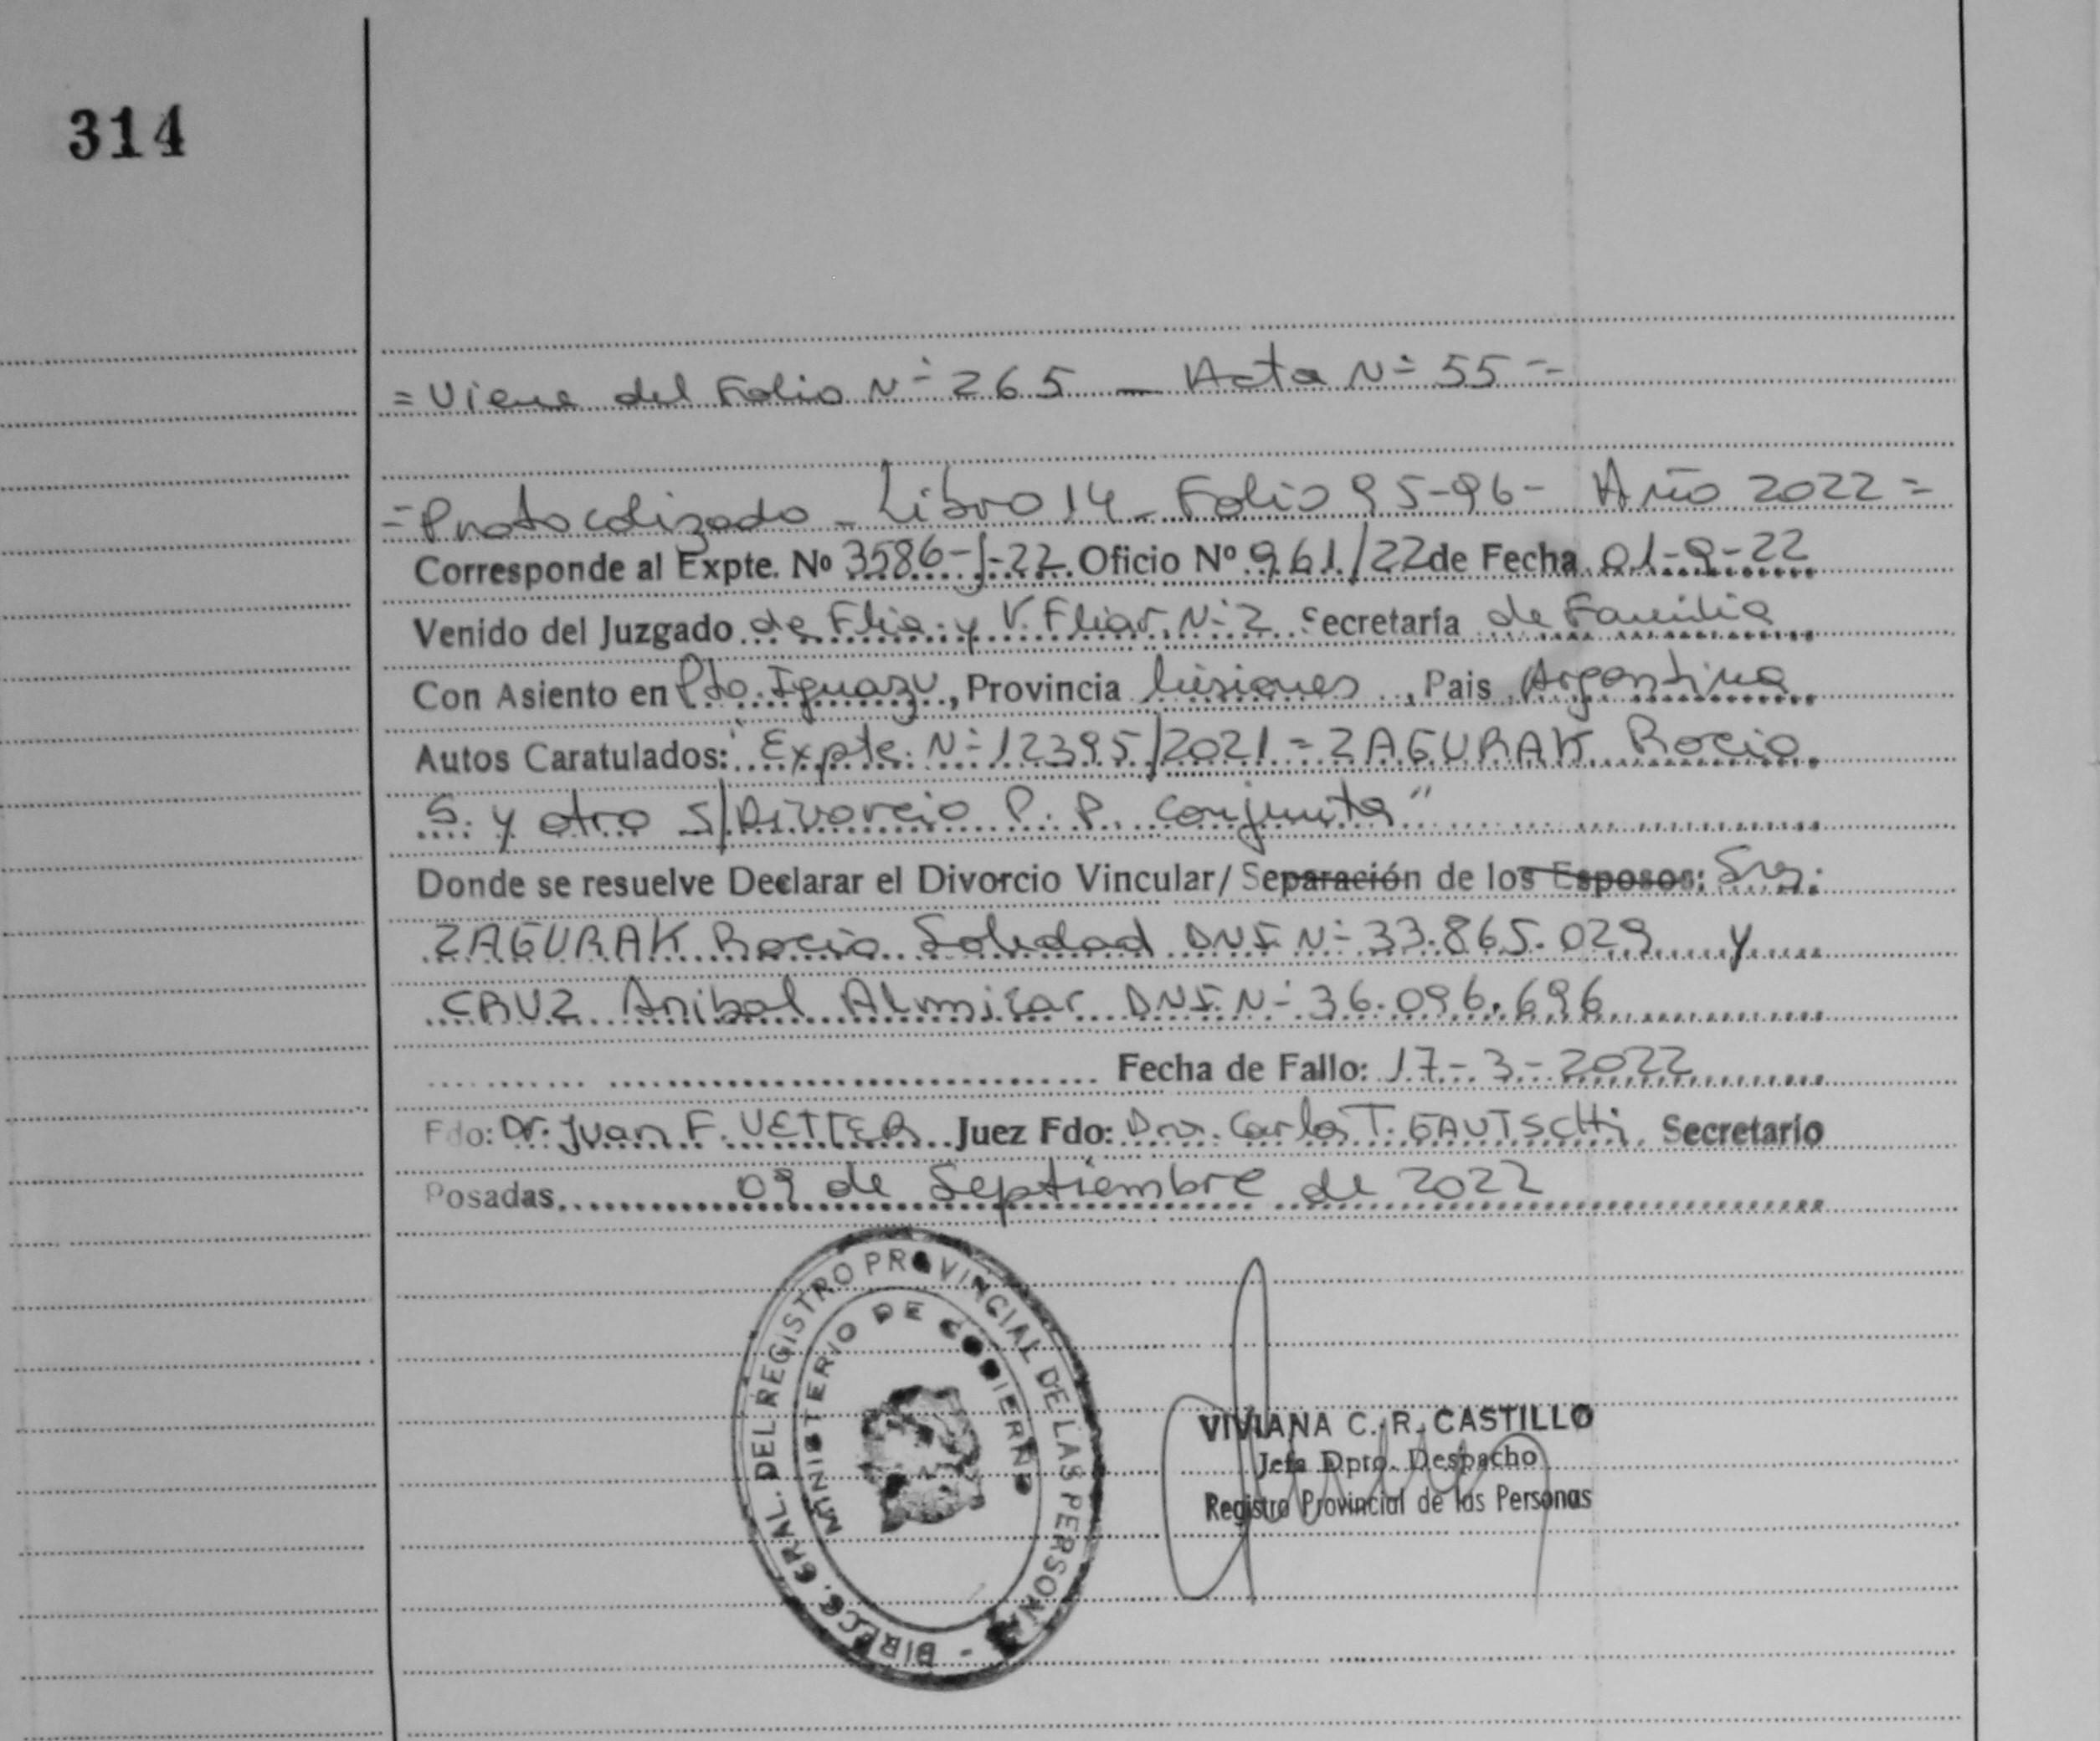 314
= Viene del Folio Nº 265 — Acta Nº 55 =
= Protocolizado - Libro 14 - Folio 95-96 - Año 2022 =
Corresponde al Expte. Nº 3586-J-22 Oficio Nº 961/22 de Fecha 01-9-22
Venido del Juzgado de Flia. y V. Fliar. Nº 2 Secretaría de Familia
Con Asiento en Pto. Iguazu, Provincia Misiones, Pais Argentina
Autos Caratulados: "Expte. Nº 12395/2021 = ZAGURAK Rocio
S. y otro S/Divorcio P. P. Conjunta"
Donde se resuelve Declarar el Divorcio Vincular/ Separación de los Esposos: Sres:
ZAGURAK Rocio Soledad DNI Nº 33.865.029 y
CRUZ Anibal Almicar DNI Nº 36.096.696
Fecha de Fallo: 17-3-2022
Fdo: Dr. Juan F. VETTER Juez Fdo: Dr. Carlos T. GAUTSCHI Secretario
Posadas, 09 de Septiembre de 2022
DIRECC. GRAL. DEL REGISTRO PROVINCIAL DE LAS PERSONAS -
MINISTERIO DE GOBIERNO
VIVIANA C. R. CASTILLO
Jefa Dpto. Despacho
Registro Provincial de las Personas